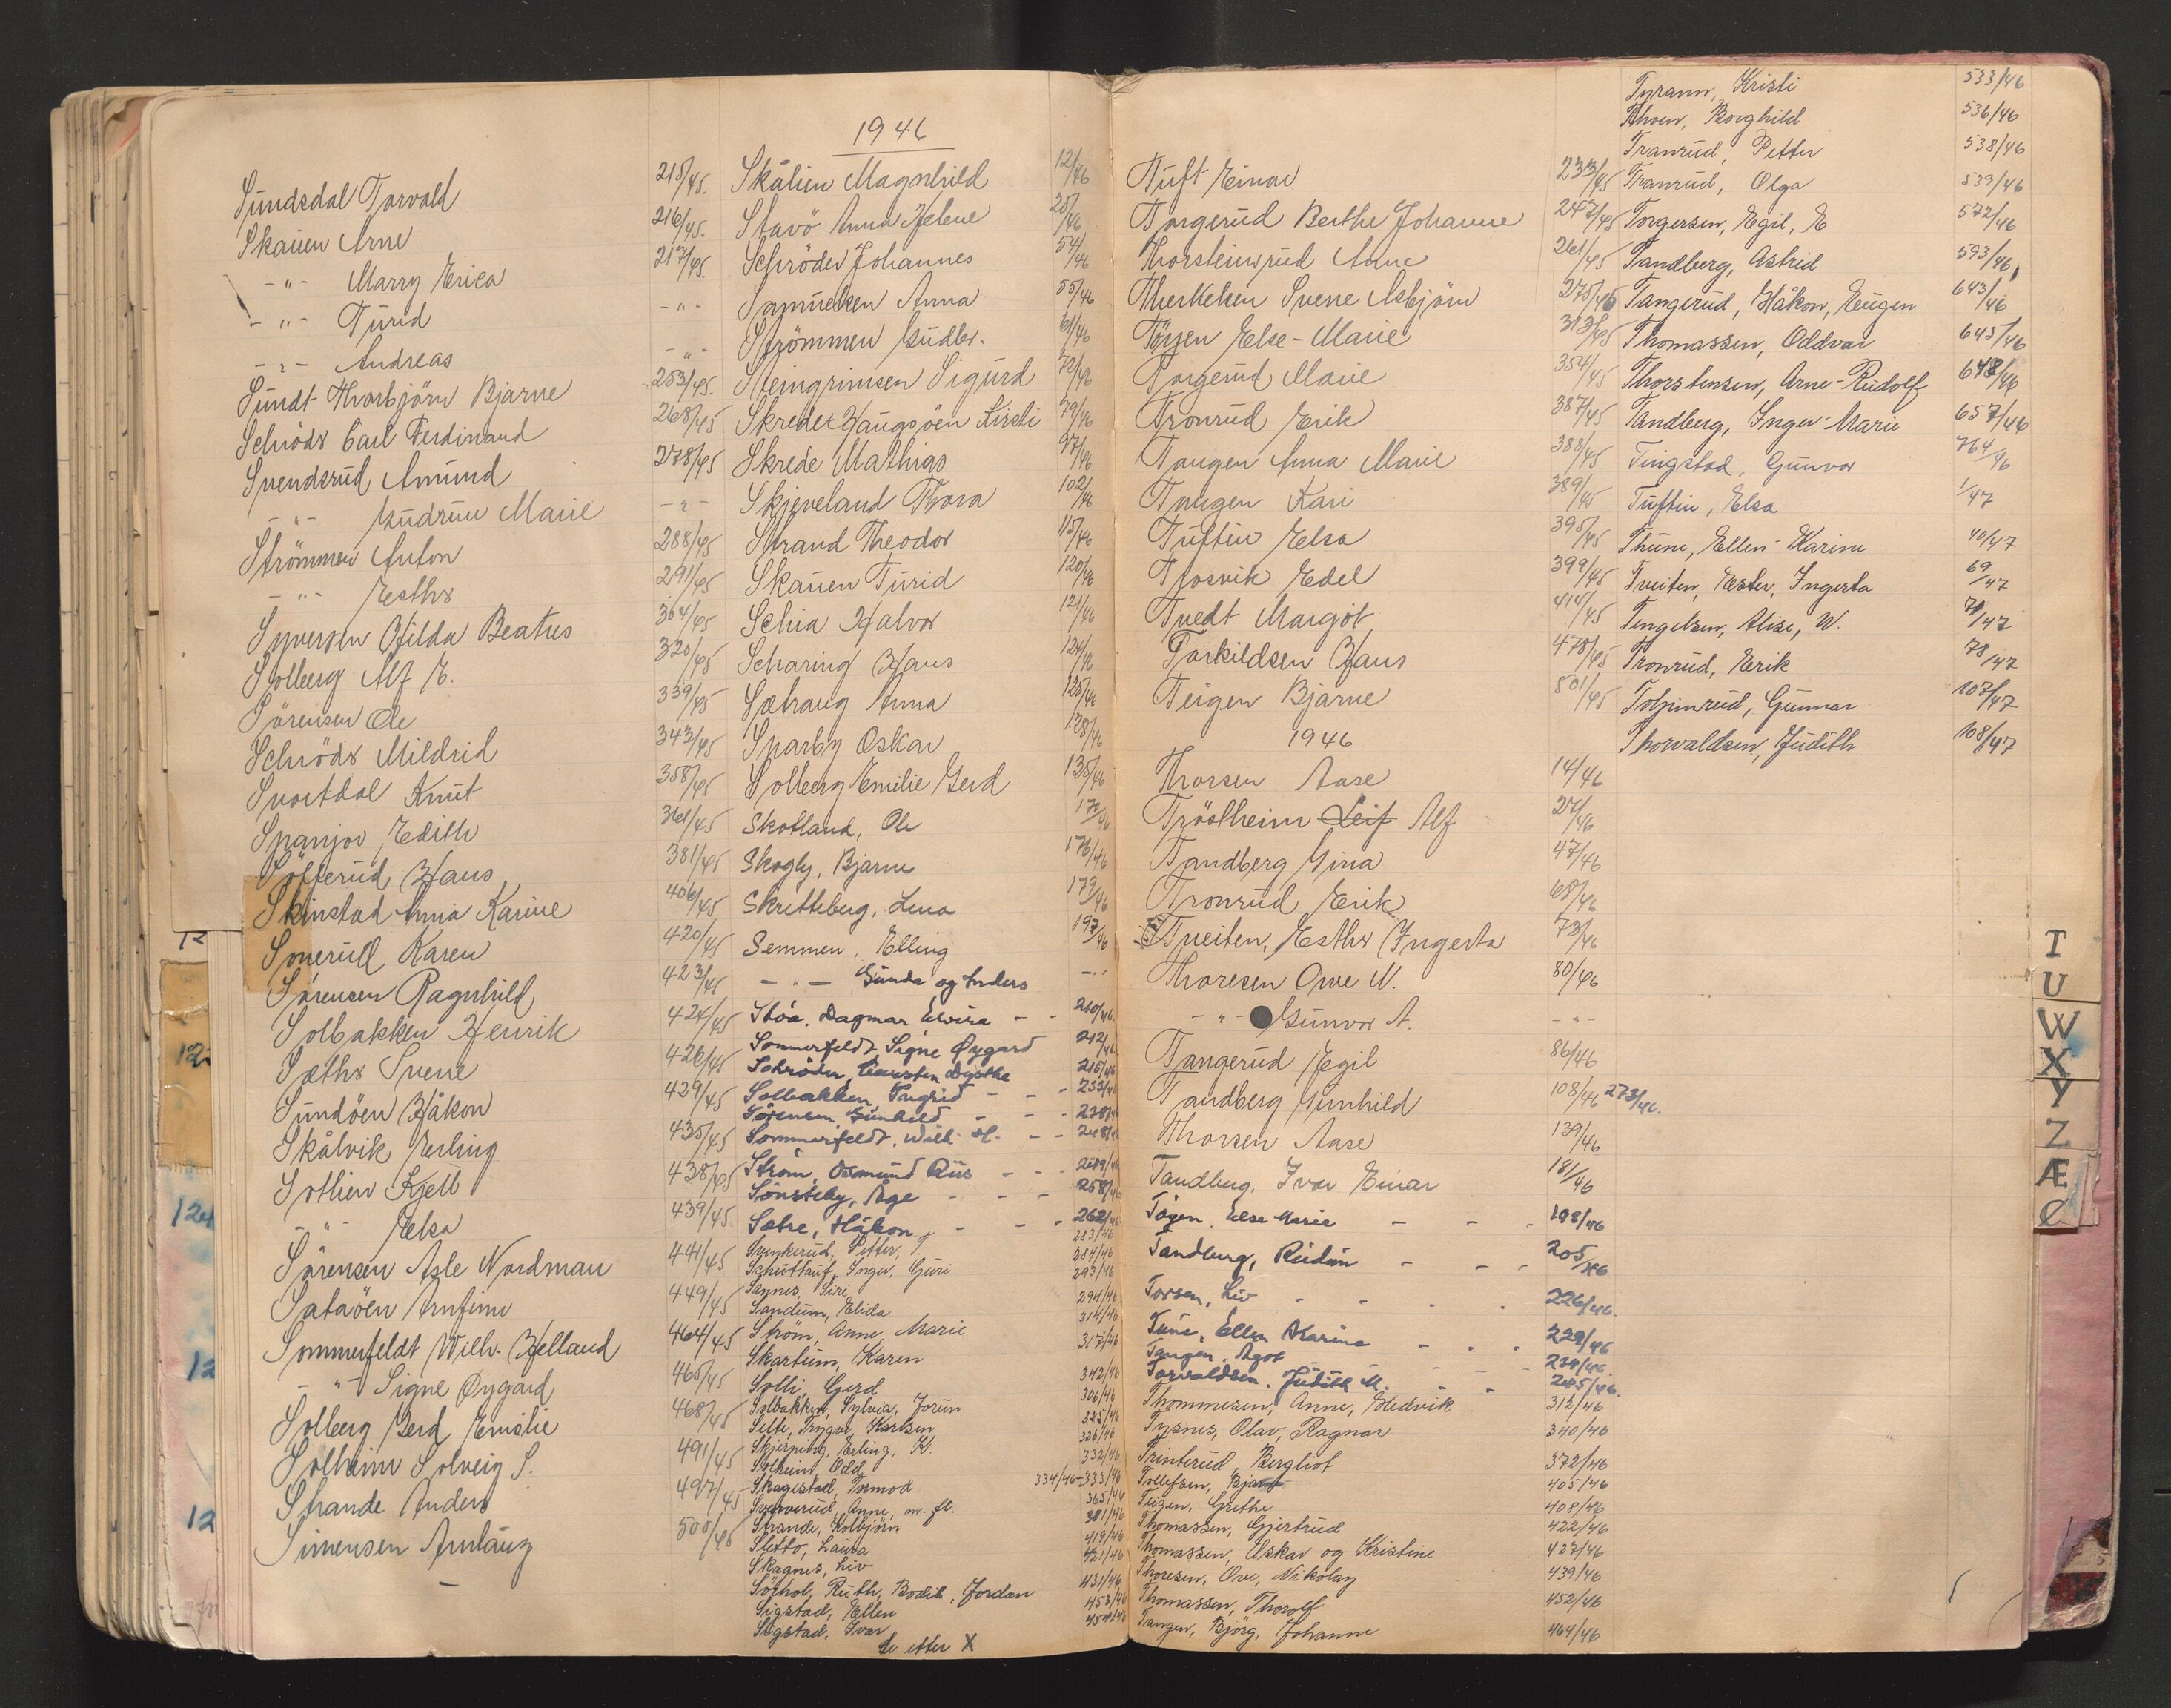 Sundsdal Torvald 215/45.
Skauen Arne 216/45.
-"- Marry Erica 217/45.
-"- Turid -"-
-"- Andreas -"-
Sundt Thorbjörn Bjarne 253/45.
Schröder Carl Ferdinand 268/45
Svendsrud Amund 278/45
-"- Gudrun Marie -"-
Strömmen Anton 288/45
-"- Esther 291/45
Syversen Hilda Beatres 304/45
Solberg Alf E. 320/45
Sörensen Ole 339/45
Schröder Mildrid 343/45
Svartdal Knut 358/45
Spanjov Edith 361/45
Hans 381/45
Skinstad Anna Karine 406/45
Sonerud Karen 420/45
Sörensen Ragnhild 423/45
Solbakken Henrik 424/45
Sæther Svene 426/45
Sundöen Håkon 429/45
Skålvik Erling 435/45
Sothien Kjell 438/45
-"- Elsa 439/45
Sörensen Asle Nordman 441/45
Sataöen Arnfinn 449/45
Sommerfeldt Wilh. Helland 464/45
-"- Signe Øygard 465/45
Solberg Gerd Emilie 468/45
Solheim Solveig S. 491/45
Strande Anders 497/45
Simensen Amlaug 500/45
1946
Skålien Magnhild 12/46
Stavö Anna Helene 25/46
Schröder Johannes 54/46
Samuelsen Anna 55/46
Strömmen Gudbr. 61/46
Steingrimsen Sigurd 72/46
Skrede Haugsöen Kirsti 79/46
Skrede Mathias 97/46
Skjeveland Thora 102/46
Strand Theodor 115/46
Skauen Turid 120/46
Schia Halvor 121/46
Scharing Hans 124/46
Sæhaug Anna 125/46
Sparby Oskar 128/46
Solberg Emilie Gerd 135/46
Skotland, Ole 172/46
Skogly, Bjarne 176/46
Skretteberg, Lena 179/46
Semmen, Elling 197/46
-"- Gunda og Anders -"-
Stöa, Dagmar Elvira - - 210/46.
Sommerfeldt Signe Øygard 212/46
Schröder, Carsten Dysthe 215/46
Solbakken, Ingrid - - - 233/46
Sörensen, Gunhild - - - 238/46
Sommerfeldt, Wilh. H. - - 248/46
Ström, Osmund Riis - - - 249/46
Sönsteby, Åge - - - 258/46
Sætre, Håkon - - - 262/46
Svenkerud, Petter, 283/46
Schuttauf, Inger, Guri 284/46
Sannes, Siri 293/46
Sandum, Elida 294/46
Ström, Anne, Marie 314/46
Skartum, Karen 317/46
Solli, Gerd 342/46
Solbakken, Sylvia, Jorun 306/46
Selte, Trygve, Karlsen 325/46
Skjerping, Erling, K. 326/46
Solheim, Odd 332/46
Skagestad, Tormod 334/46-333/46
Sperverud, Anne, m. fl. 365/46
Strande, Kolbjörn 381/46
Sletto, Laura 419/46
Skagnes, Liv 421/46
Söthol, Ruth, Bodil, Jordan 431/46
Sigstad, Ellen 453/46
Sigstad, Ivar 454/46
Se etter X
Tuft Einar 233/45
Torgerud Berthe Johanne 247/45
Thorsteinsrud Anne 261/45
Therkelsen Sverre Asbjörn 275/45
Töyen Else-Marie 313/45
Torgerud Marie 354/45
Tronrud Erik 387/45
Tangen Anna Marie 388/45
Tangen Kari 389/45
Tuftin Elsa 395/45
Trosvik Edel 399/45
Tvedt Margot 414/45
Torkildsen Hans 478/45
Teigen Bjarne 501/45
1946
Thorsen Aase 14/46
Tröstheim Leif Alf 24/46
Tandberg Gina 47/46
Tronrud Erik 68/46
Tveiten, Esther Ingerta 73/46
Thoresen Owe N. 80/46
-"- Gunvor A. -"-
Tangerud Egil 86/46
Tandberg Gunhild 108/46 273/46.
Thorsen Aase 139/46
Tandberg, Ivar Einar 181/46
Töyen, Else Marie - - - 198/46
Tandberg, Reidun - - - 205/46
Torsen, Liv - - - - 226/46.
Tune, Ellen Karine - - - 229/46
Tangen, Agot - - - 234/46.
Torvaldsen, Judith M. - - 245/46.
Thommesen, Anne, Hedvik 312/46
Tysnes, Olav, Ragnar 340/46
Trinterud, Bergliot 372/46
Tollefsen, Bjarne 405/46
Teigen, Grethe 408/46
Thomassen, Gjertrud 422/46
Thomassen, Oskar og Kristine 427/46
Thoresen, Ove, Nikolay 439/46
Thomassen, Thorolf 452/46
Tangen, Björg, Johanne 464/46
Tyrann, Kristi 533/46
Thoen, Borghild 536/46
Tranrud, Petter 538/46
Tranrud, Olga 539/46
Torgersen, Egil, E 572/46
Tandberg, Astrid 593/46
Tangerud, Håkon, Eugen 643/46
Thomassen, Oddvar 645/46
Thorstensen, Arne-Rudolf 648/46
Tandberg, Inger-Marie 657/46
Tingstad, Gunvor 764/46
Tuftin, Elsa 1/47
Thune, Ellen-Karine 40/47
Tveiten, Ester, Ingerta 69/47
Tengelsen, Alise, W. 71/47
Tronrud, Erik 78/47
Tolpinrud, Gunnar 107/47
Thorvaldsen, Judith 108/47
T
U
W
X
Y
Z
Æ
Ø
12
124
12
12